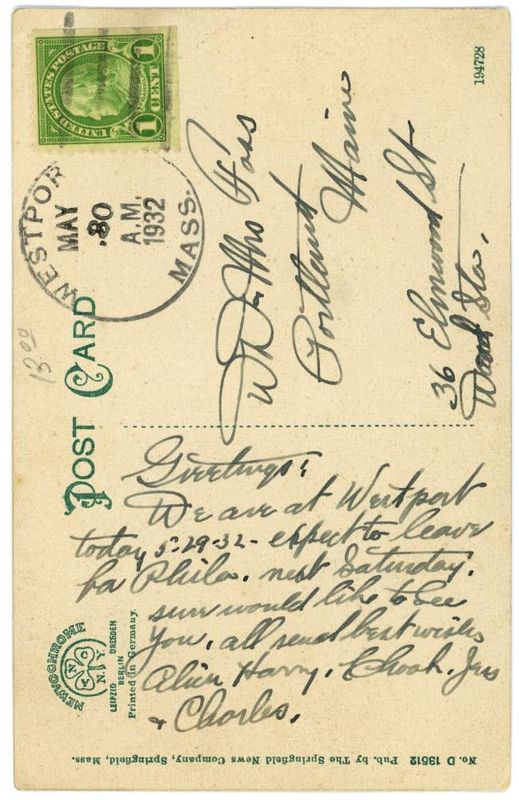 194728
UNITED STATES POSTAGE
1 CENT 1
WESTPOR
MASS.
MAY
30
A.M.
1932
13.00
POST CARD
Mrs Foss
Portland Maine
36 Elmwood St
Greetings:
We are at Westport
today 5-29-32 - expect to leave
for Phila. next Saturday.
sure would like to see
you, all send best wishes
Harry,
& Charles.
NEWVOCHROME
N Y C N Y
LEIPZIG
BERLIN DRESDEN
Printed in Germany.
No. D 13512 Pub. by The Springfield News Company, Springfield, Mass.